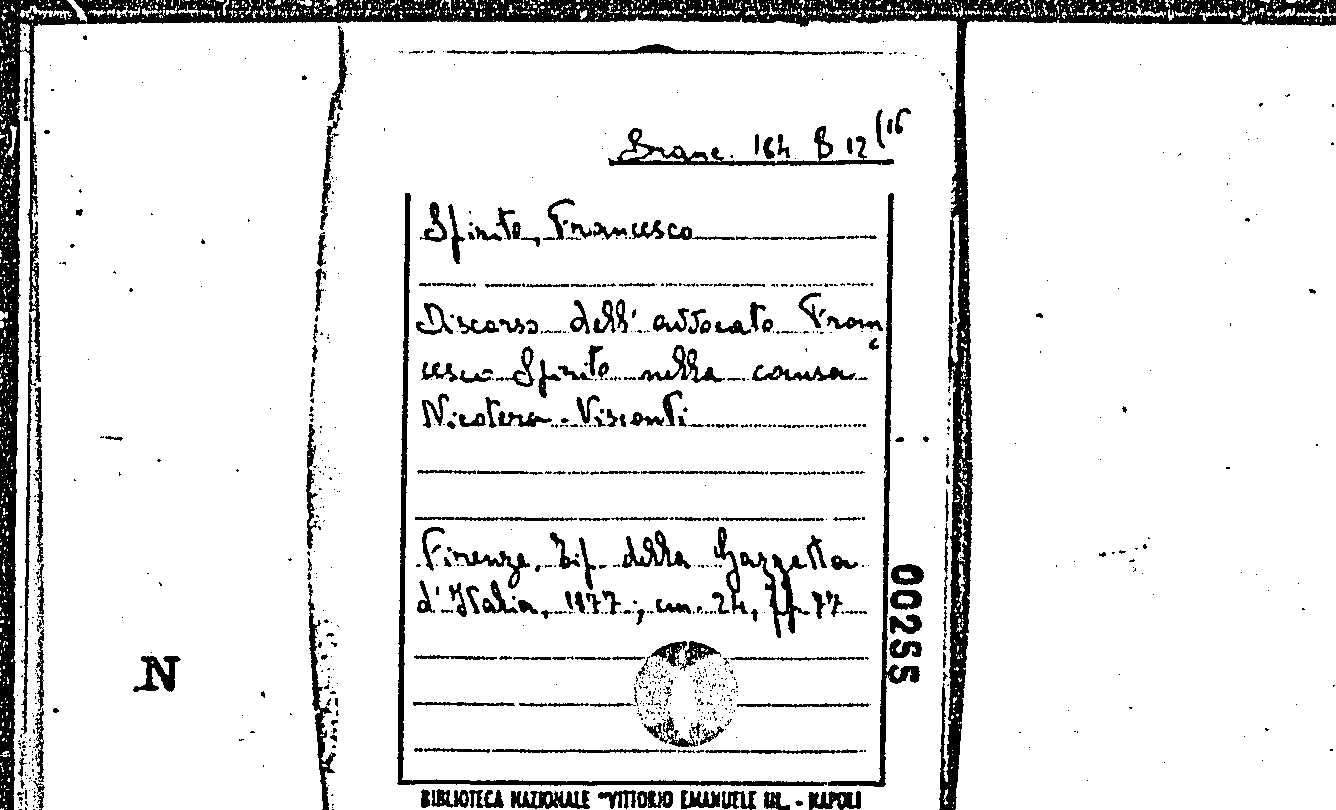 Branc. 164 B 12 (16
Spirito, Francesco
Discorso dell' avvocato Fran
cesco Spirito nella causa
Nicotera - Visconti
Firenze, Tip. della Gazzetta
d'Italia, 1877; cm. 24, pp. 77
00255
N
BIBLIOTECA NAZIONALE "VITTORIO EMANUELE III" - NAPOLI